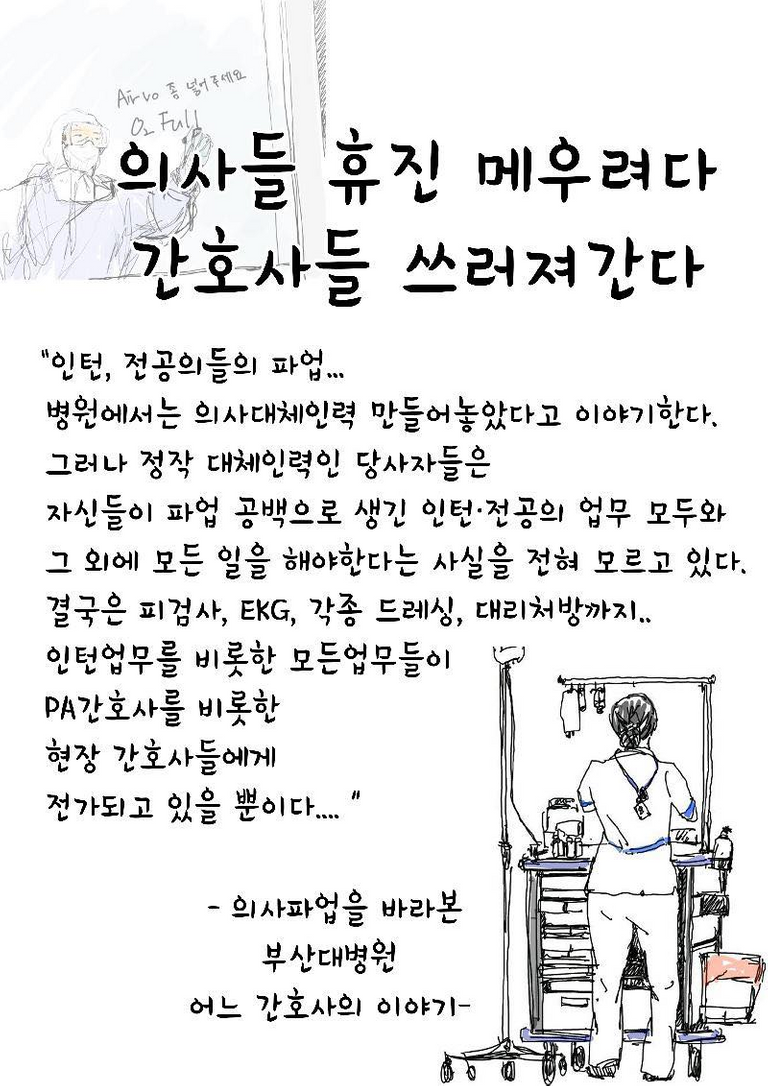 Airvo 좀 넣어주세요
O₂ Full
의사들 휴진 메우려다
간호사들 쓰러져간다
"인턴, 전공의들의 파업...
병원에서는 의사대체인력 만들어놓았다고 이야기한다.
그러나 정작 대체인력인 당사자들은
자신들이 파업 공백으로 생긴 인턴·전공의 업무 모두와
그 외에 모든 일을 해야한다는 사실을 전혀 모르고 있다.
결국은 피검사, EKG, 각종 드레싱, 대리처방까지..
인턴업무를 비롯한 모든업무들이
PA간호사를 비롯한
현장 간호사들에게
전가되고 있을 뿐이다.... "
- 의사파업을 바라본
부산대병원
어느 간호사의 이야기-